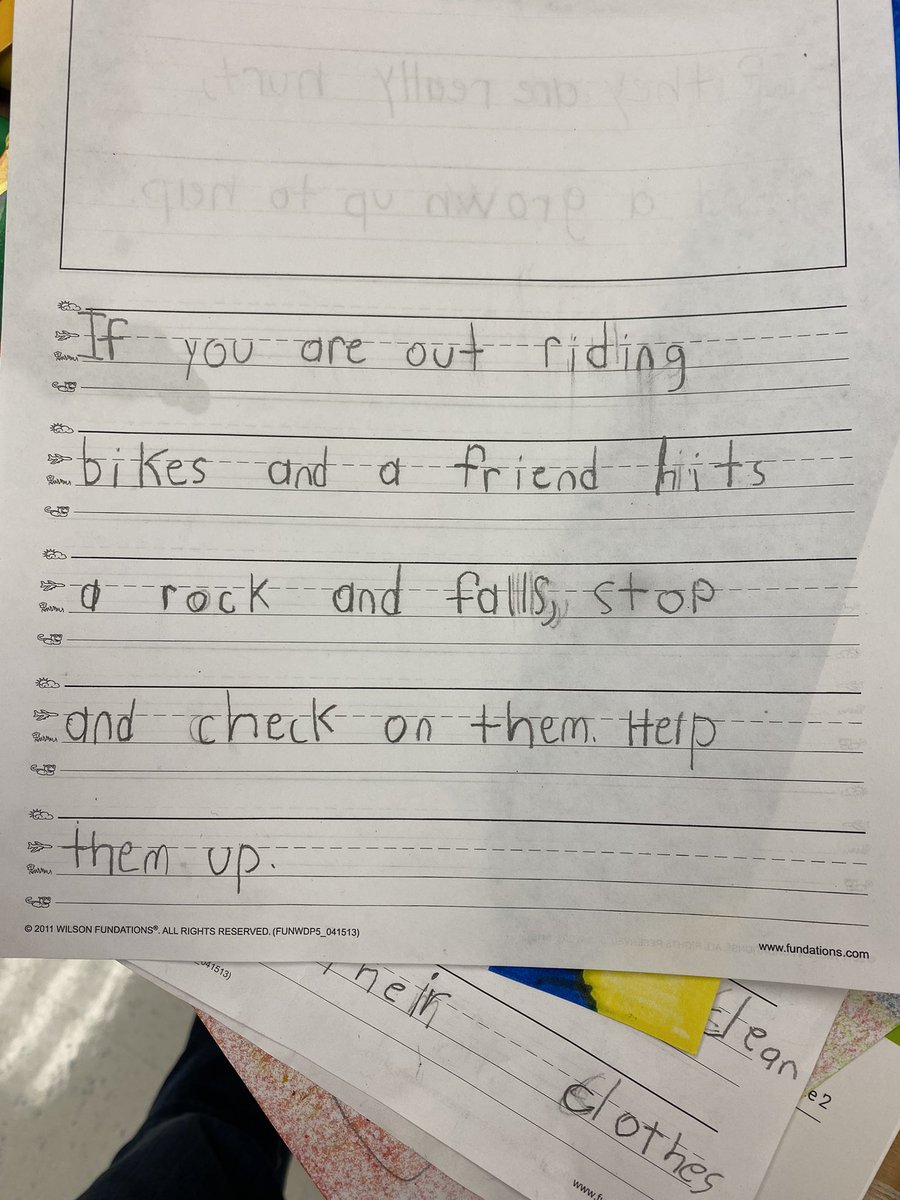 If they are really hurt,
a grown up to help.
If you are out riding
bikes and a friend hits
a rock and falls, stop
and check on them. Help
them up.
© 2011 WILSON FUNDATIONS®. ALL RIGHTS RESERVED. (FUNWDP5_041513)
www.fundations.com
041513)
Their
clean
clothes
e 2
www.f